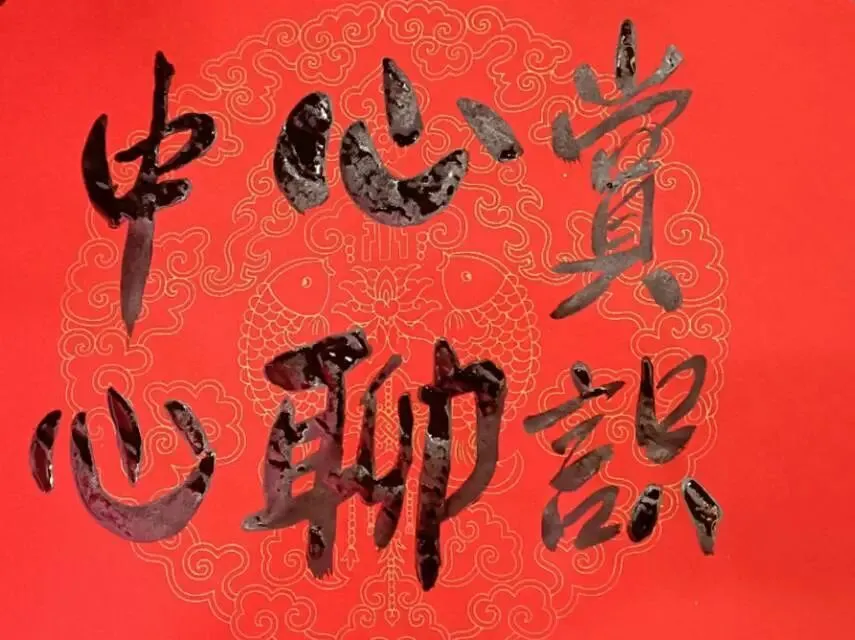 賞识
心聊
中心